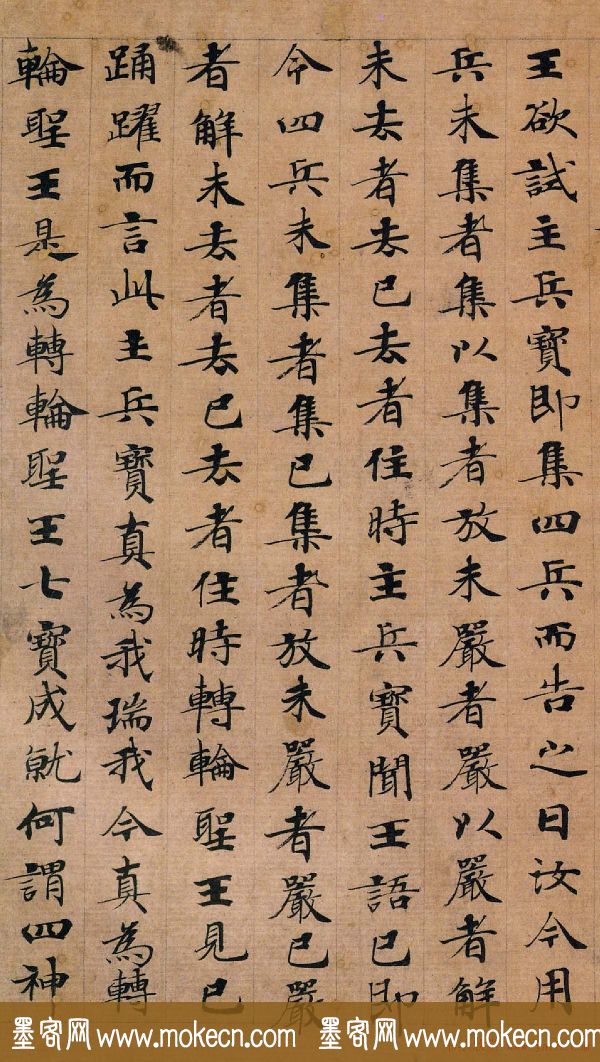 王欲試主兵寶即集四兵而告之曰汝今用
兵未集者集以集者放未嚴者嚴以嚴者解
未去者去已去者住時主兵寶聞王語已即
令四兵未集者集已集者放未嚴者嚴已嚴
者解未去者去已去者住時轉輪聖王見已
踊躍而言此主兵寶真為我瑞我今真為轉
輪聖王是為轉輪聖王七寶成就何謂四神
墨客网 www.mokecn.com 墨客网 www.mokecn.com